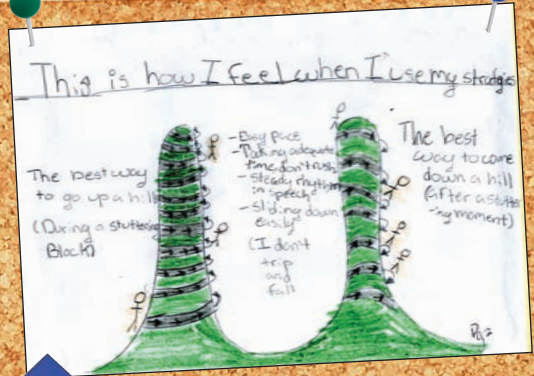 This is how I feel when I use my strategies
The best way
to go up a hill
(During a stuttering
Block)
- Easy pace
- Taking adequate
time, don't rush
- steady rhythm
in speech
- sliding down
easily
(I don't
trip
and
fall
The best
way to come
down a hill
(after a stutter
-ing moment)